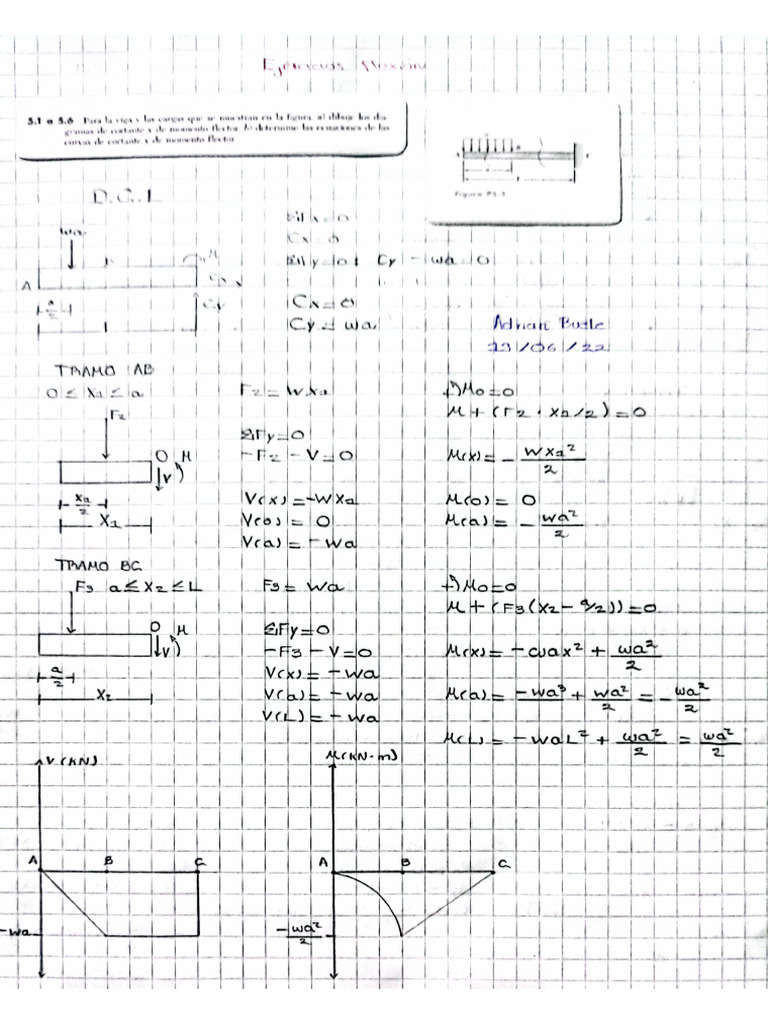 Ejercicios flexión
5.1 a 5.6 Para la viga y las cargas que se muestran en la figura, a) dibuje los dia-
gramas de cortante y de momento flector. b) determine las ecuaciones de las
curvas de cortante y de momento flector.
Figura P5.3
D.C.L
wa
M
A
Cx
Cy
a/2
ΣFx=0
Cx=0
ΣFy=0: Cy - wa = 0
Cx=0
Cy = wa
Adrian Buele
TRAMO AB
0 ≤ X1 ≤ a
F2
O M
V
X1/2
X1
F2 = W X1
ΣFy=0
-F2 - V=0
V(x) = -W X1
V(0) = 0
V(a) = -wa
+) Mo=0
M + (F2 · X1/2) = 0
M(x) = - WX1²/2
M(0) = 0
M(a) = - wa²/2
TRAMO BC
F3 a ≤ X2 ≤ L
O M
V
a/2
X2
F3 = Wa
ΣFy=0
-F3 - V=0
V(x) = -wa
V(a) = -wa
V(L) = -wa
+) Mo=0
M + (F3(X2 - a/2)) = 0
M(x) = -wax² + wa²/2
M(a) = -wa³ + wa²/2 = - wa²/2
M(L) = -waL² + wa²/2 = wa²/2
V(KN)
A B C
-wa
M(KN-m)
A B C
-wa²/2